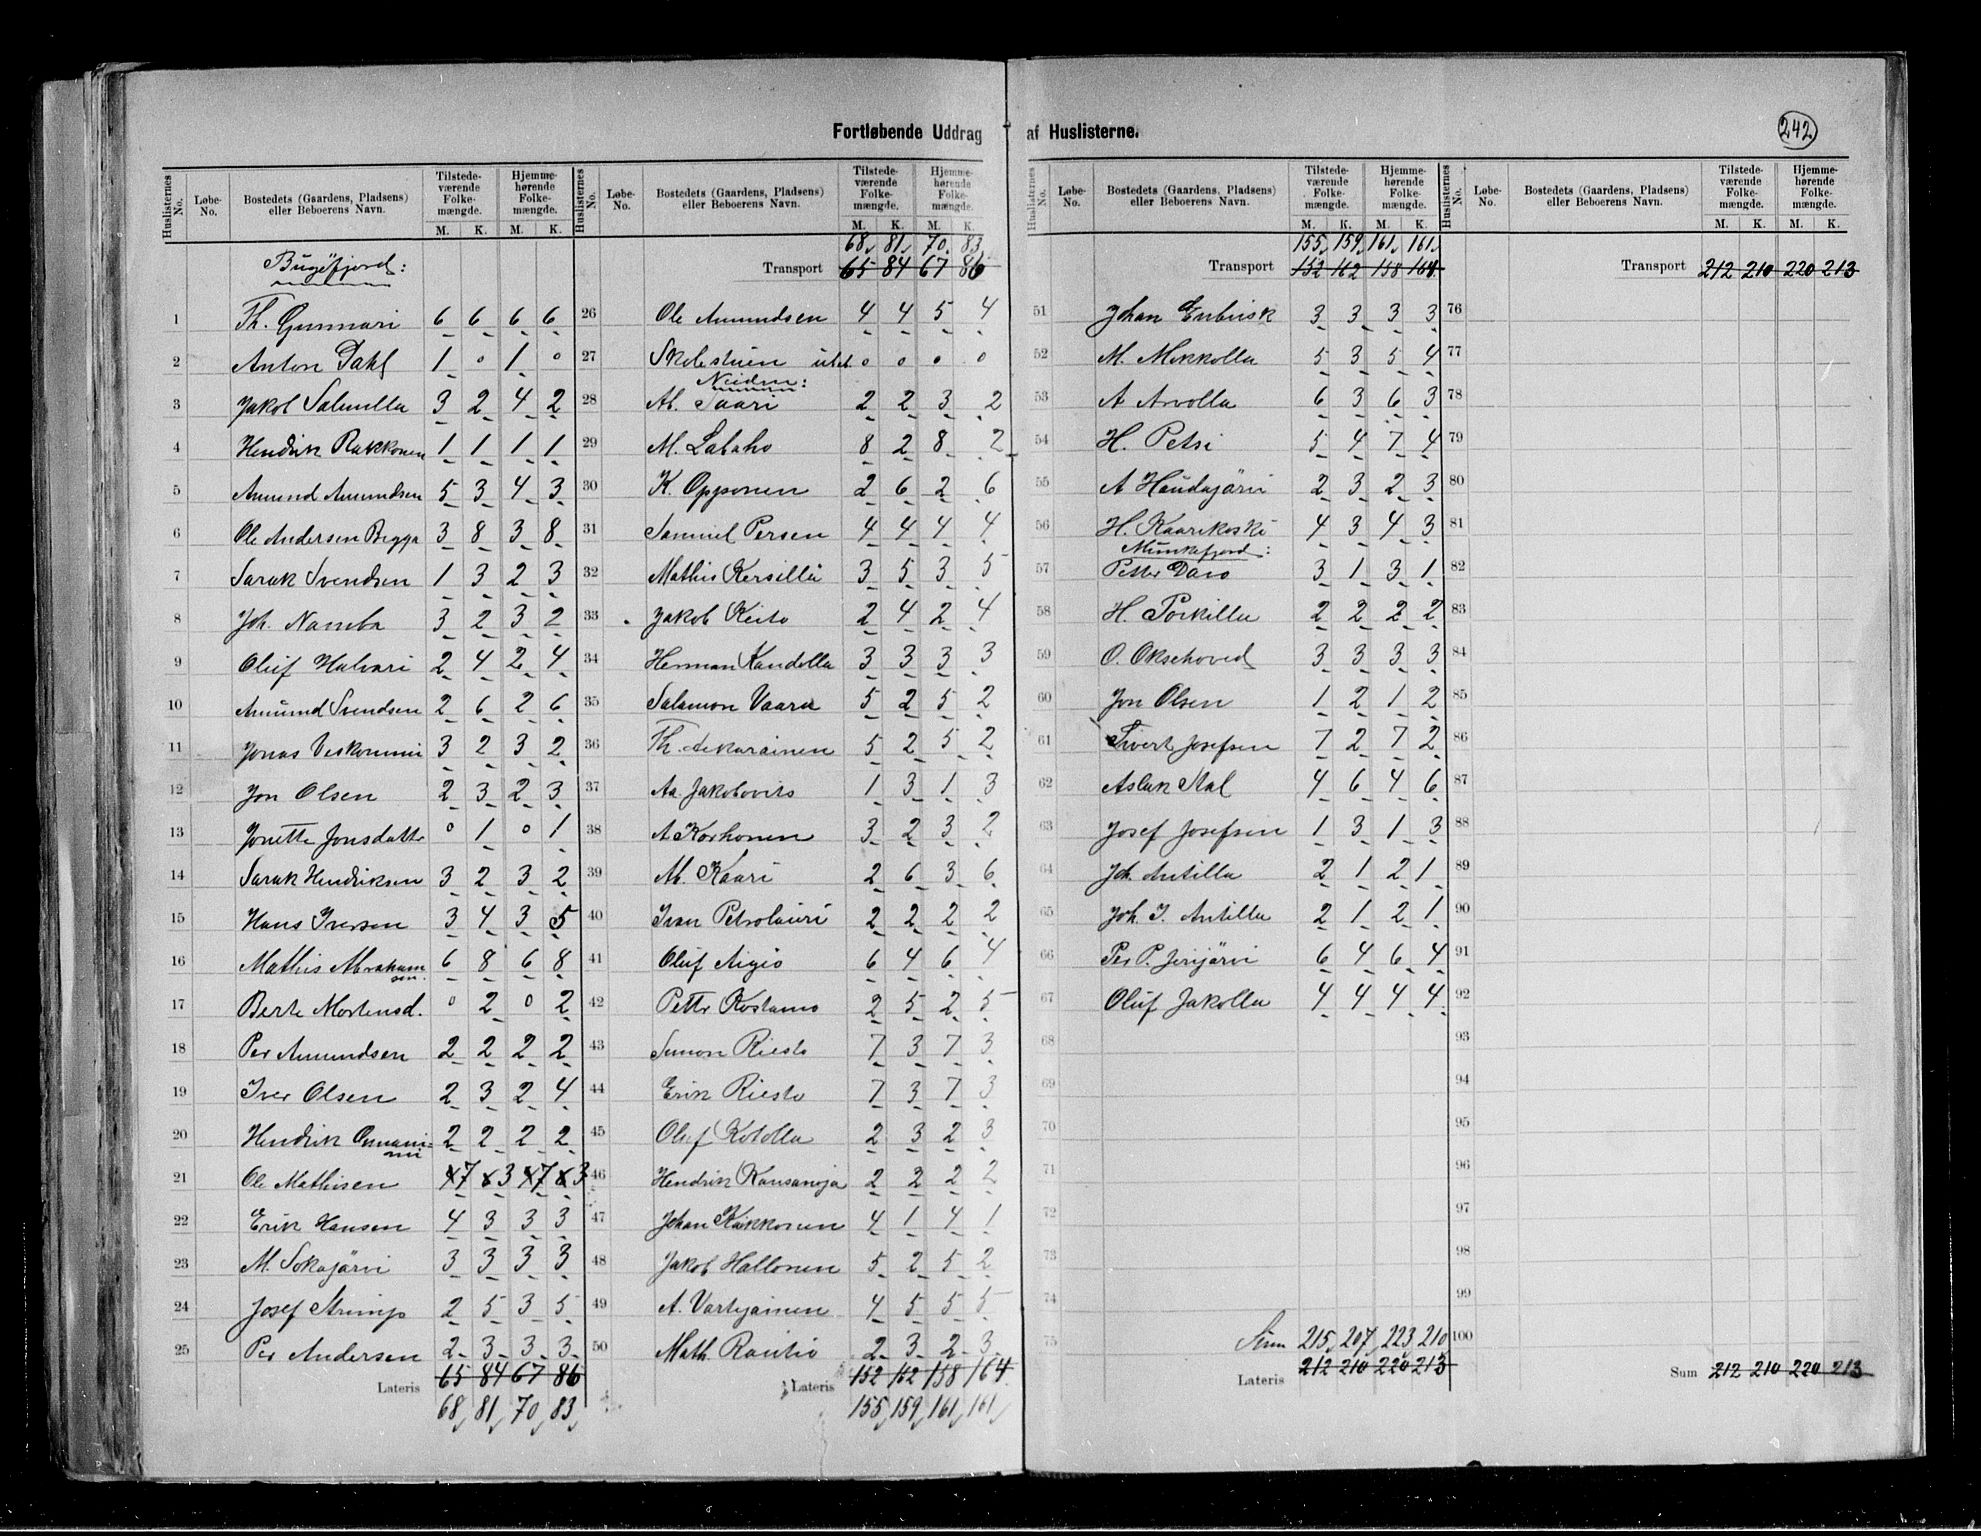 Fortløbende Uddrag af Huslisterne.
242
Huslisternes No. Løbe-No. Bostedets (Gaardens, Pladsens) eller Beboerens Navn. Tilstedeværende Folkemængde. M. K. Hjemmehørende Folkemængde. M. K.
Bugöfjord:
1 Th. Gunnari 6 6 6 6
2 Anton Dahl 1 0 1 0
3 Jakob Salmilla 3 2 4 2
4 Hendrik Rakkonen 1 1 1 1
5 Amund Amundsen 5 3 4 3
6 Ole Andersen Begga 3 8 3 8
7 Sarak Svendsen 1 3 2 3
8 Joh. Namba 3 2 3 2
9 Oluf Halvari 2 4 2 4
10 Amund Svendsen 2 6 2 6
11 Jonas 3 2 3 2
12 Jon Olsen 2 3 2 3
13 Jonette Jonsdattr 0 1 0 1
14 Sarak Hendriksen 3 2 3 2
15 Hans Iversen 3 4 3 5
16 Mathis Abrahamsen 6 8 6 8
17 Berte Mortensd. 0 2 0 2
18 Per Amundsen 2 2 2 2
19 Iver Olsen 2 3 2 4
20 Hendrik 2 2 2 2
21 Ole Mathisen 7 3 7 3
22 Erik Hansen 4 3 3 3
23 M. Sokajärvi 3 3 3 3
24 Josef Strimp 2 5 3 5
25 Per Andersen 2 3 3 3
Lateris 65 84 67 86
68 81 70 83
Huslisternes No. Løbe-No. Bostedets (Gaardens, Pladsens) eller Beboerens Navn. Tilstedeværende Folkemængde. M. K. Hjemmehørende Folkemængde. M. K.
68 81 70 83
Transport 65 84 67 86
26 Ole Amundsen 4 4 5 4
27 Skolestuen ubeb. 0 0 0 0
Neiden:
28 Ab. Saari 2 2 3 2
29 M. Labaho 8 2 8 2
30 K. Opponen 2 6 2 6
31 Samuel Persen 4 4 4 4
32 Mathis Kersillä 3 5 3 5
33 Jakob Keito 2 4 2 4
34 Herman Kandella 3 3 3 3
35 Salamon Vaara 5 2 5 2
36 Th. 5 2 5 2
37 Aa. Jakobovits 1 3 1 3
38 A Korhonen 3 2 3 2
39 Ab. Kaari 2 6 3 6
40 Ivan Petrolauri 2 2 2 2
41 Oluf Aigio 6 4 6 4
42 Petter Kostamo 2 5 2 5
43 Simon Riesto 7 3 7 3
44 Erik Riesto 7 3 7 3
45 Oluf Kotolla 2 3 2 3
46 Hendrik Kansanoja 2 2 2 2
47 Johan Kükkonen 4 1 4 1
48 Jakob Hallonen 5 2 5 2
49 A. Vartyainen 4 5 5 5
50 Math. Rautio 2 3 2 3
Lateris 152 162 158 164
155 159 161 161
Huslisternes No. Løbe-No. Bostedets (Gaardens, Pladsens) eller Beboerens Navn. Tilstedeværende Folkemængde. M. K. Hjemmehørende Folkemængde. M. K.
155 159 161 161
Transport 152 162 158 164
51 Johan Enbusk 3 3 3 3
52 M. Mokkolla 5 3 5 4
53 A Arvolla 6 3 6 3
54 H. Petsi 5 4 7 4
55 A Haudajärvi 2 3 2 3
56 H. Kaarikoski 4 3 4 3
Munkefjord:
57 Petter Daro 3 1 3 1
58 H. Porkilla 2 2 2 2
59 O. Oksehoved 3 3 3 3
60 Jon Olsen 1 2 1 2
61 Sivert Josefsen 7 2 7 2
62 Aslak Stal 4 6 4 6
63 Josef Josefsen 1 3 1 3
64 Joh. Antilla 2 1 2 1
65 Joh. I. Antilla 2 1 2 1
66 Per P. Jerijärvi 6 4 6 4
67 Oluf Jakolla 4 4 4 4
68
69
70
71
72
73
74
75 Sum 215 207 223 210
Lateris 212 210 220 213
Huslisternes No. Løbe-No. Bostedets (Gaardens, Pladsens) eller Beboerens Navn. Tilstedeværende Folkemængde. M. K. Hjemmehørende Folkemængde. M. K.
Transport 212 210 220 213
76
77
78
79
80
81
82
83
84
85
86
87
88
89
90
91
92
93
94
95
96
97
98
99
100
Sum 212 210 220 213